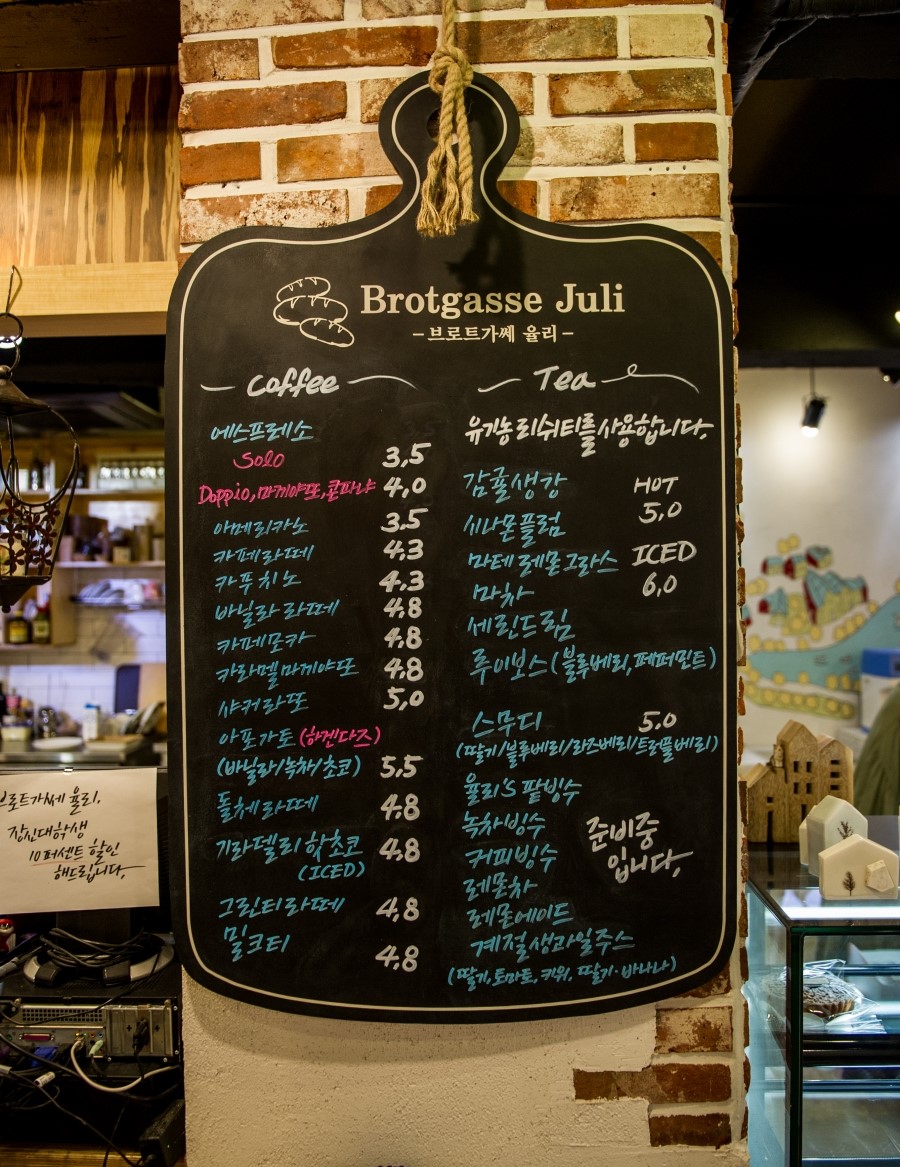 Brotgasse Juli
–브로트가쎄 율리–
Coffee
에스프레소
Solo 3,5
Doppio, 마끼야또, 콘파냐 4,0
아메리카노 3,5
카페라떼 4,3
카푸치노 4,3
바닐라 라떼 4,8
카페모카 4,8
카라멜마끼야또 4,8
샤커라또 5,0
아포가토 (하겐다즈)
(바닐라/녹차/초코) 5,5
돌체라떼 4,8
기라델리 핫초코 4,8
(ICED)
그린티라떼 4,8
밀크티 4,8
Tea
유기농 리쉬티를 사용합니다.
감귤생강
시나몬플럼
마테 레몬그라스
마차
세린드림
루이보스 (블루베리, 페퍼민트)
HOT
5,0
ICED
6,0
스무디 5,0
(딸기/블루베리/라즈베리/트러플베리)
율리's 팥빙수
녹차빙수
커피빙수
레몬차
레몬에이드
계절생과일주스
(딸기, 토마토, 키위, 딸기·바나나)
준비중
입니다.
브로트가쎄 율리,
장신대학생
10퍼센트 할인
해드립니다.